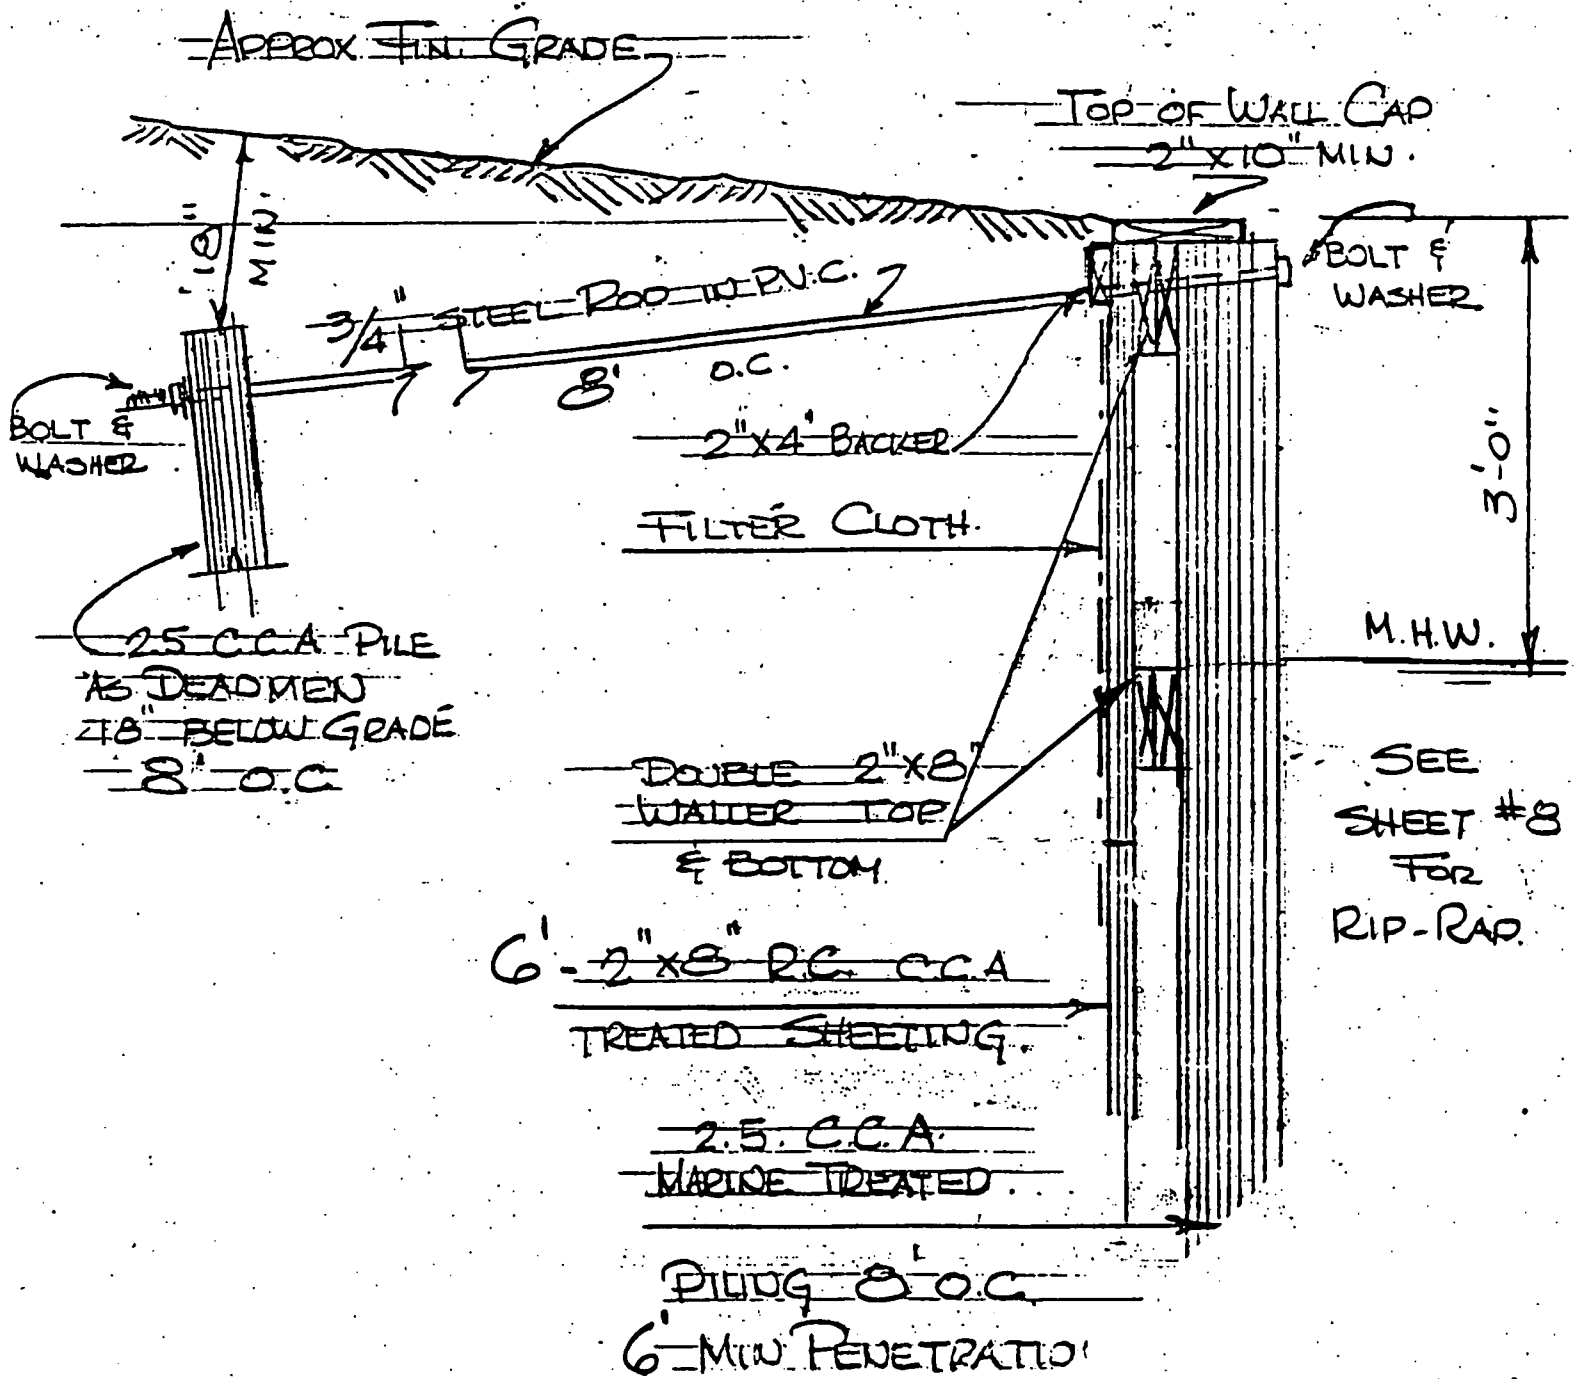 APPROX FIN. GRADE
TOP OF WALL CAP
2"X10" MIN.
18"
MIN.
BOLT &
WASHER
3/4" STEEL ROD IN P.V.C.
8' O.C.
BOLT &
WASHER
2"X4" BACKER
3'-0"
FILTER CLOTH.
M.H.W.
2.5 C.C.A PILE
AS DEADMEN
18" BELOW GRADE
8' O.C
DOUBLE 2"X8"
WALLER TOP
& BOTTOM
SEE
SHEET #8
FOR
RIP-RAP.
6' - 2"X8" R.C. C.C.A
TREATED SHEETING.
2.5. C.C.A.
MARINE TREATED
PILING 8' O.C.
6' MIN PENETRATIO